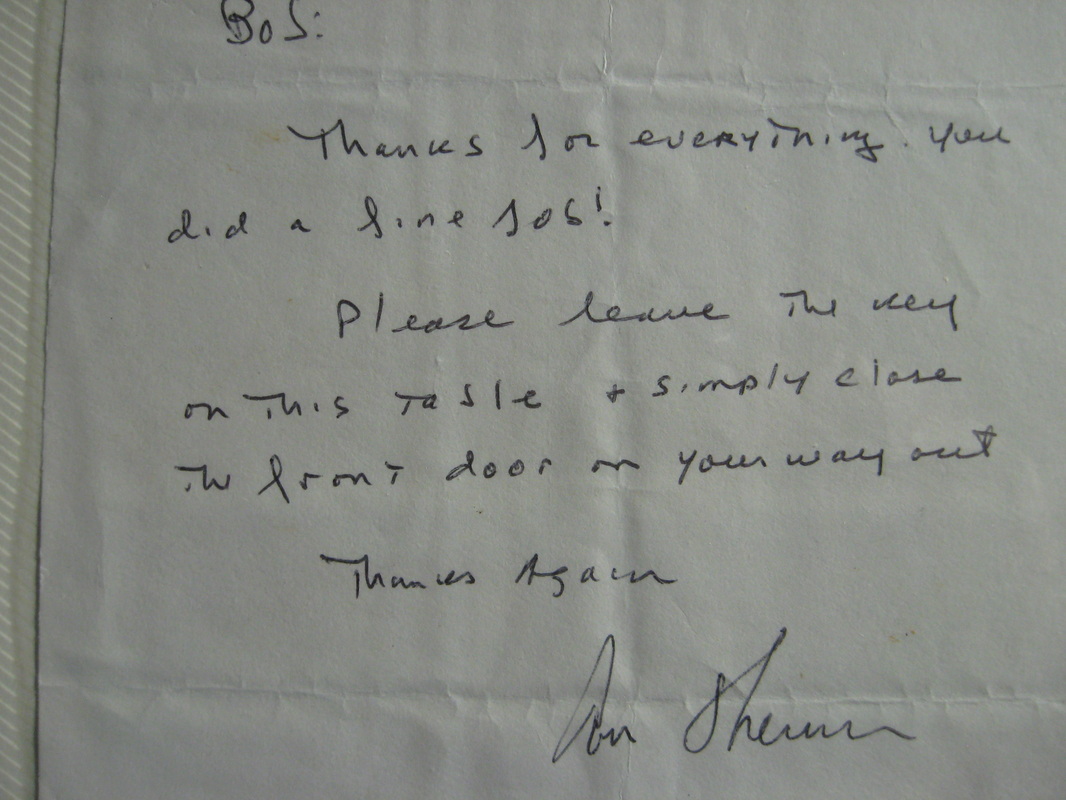 Bob:
Thanks for everything. You
did a fine job!
Please leave the key
on this table + simply close
the front door on your way out
Thanks Again